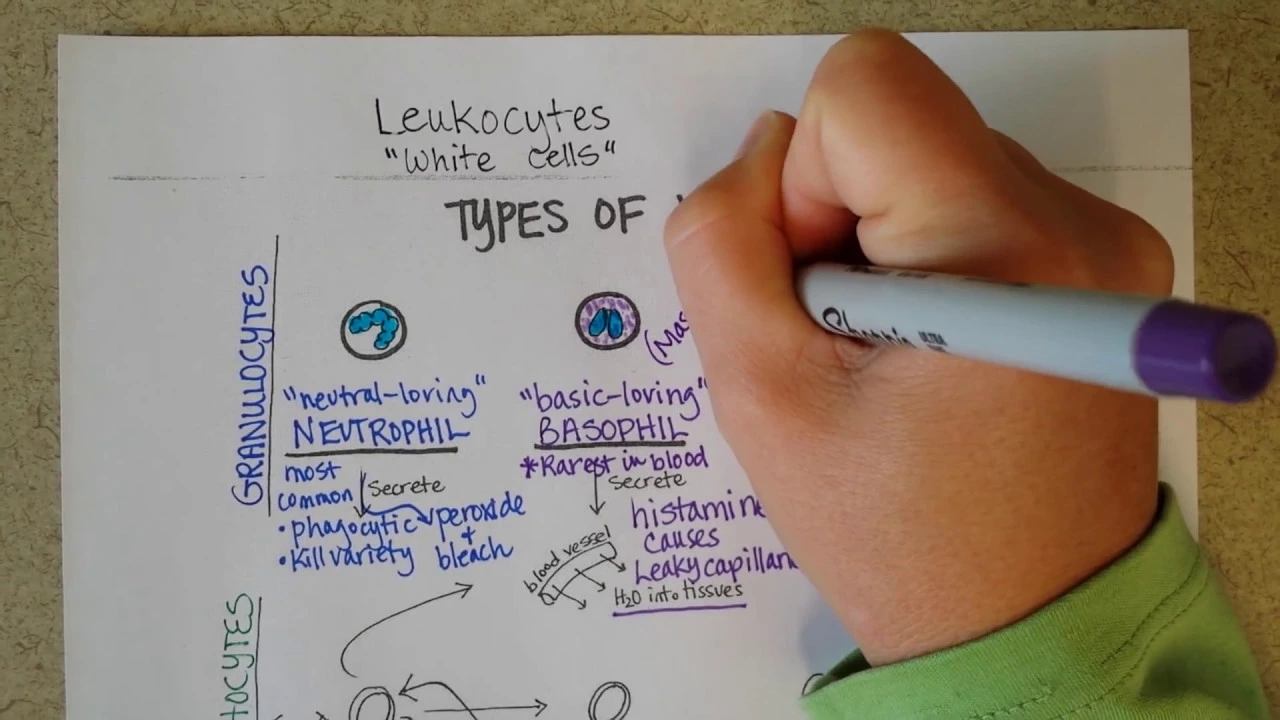 Leukocytes
"White cells"
TYPES OF
GRANULOCYTES
"neutral-loving"
NEUTROPHIL
most
common
Secrete
• phagocytic
peroxide
+
• Kill variety
bleach
(Mas
"basic-loving"
BASOPHIL
*Rarest in blood
Secrete
histamine
causes
Leaky capillari
blood vessel
H₂O into tissues
Sharpie
ULTRA